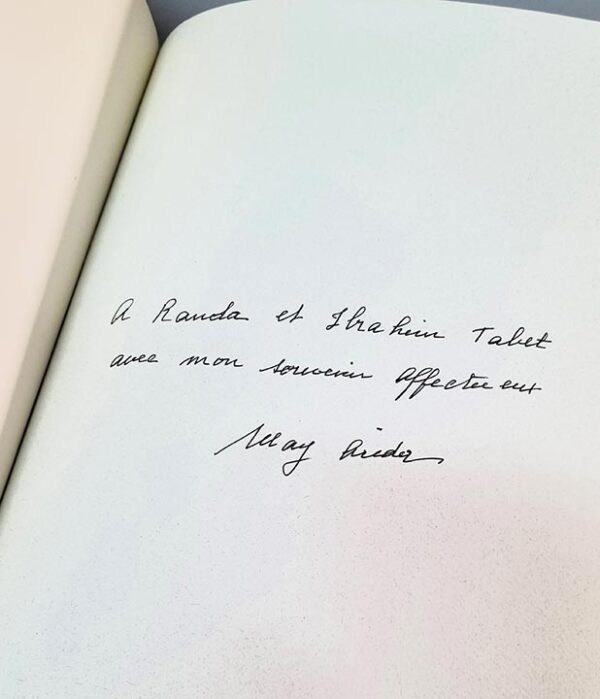 A Randa et Ibrahim Tabet
avec mon souvenir affectueux
May